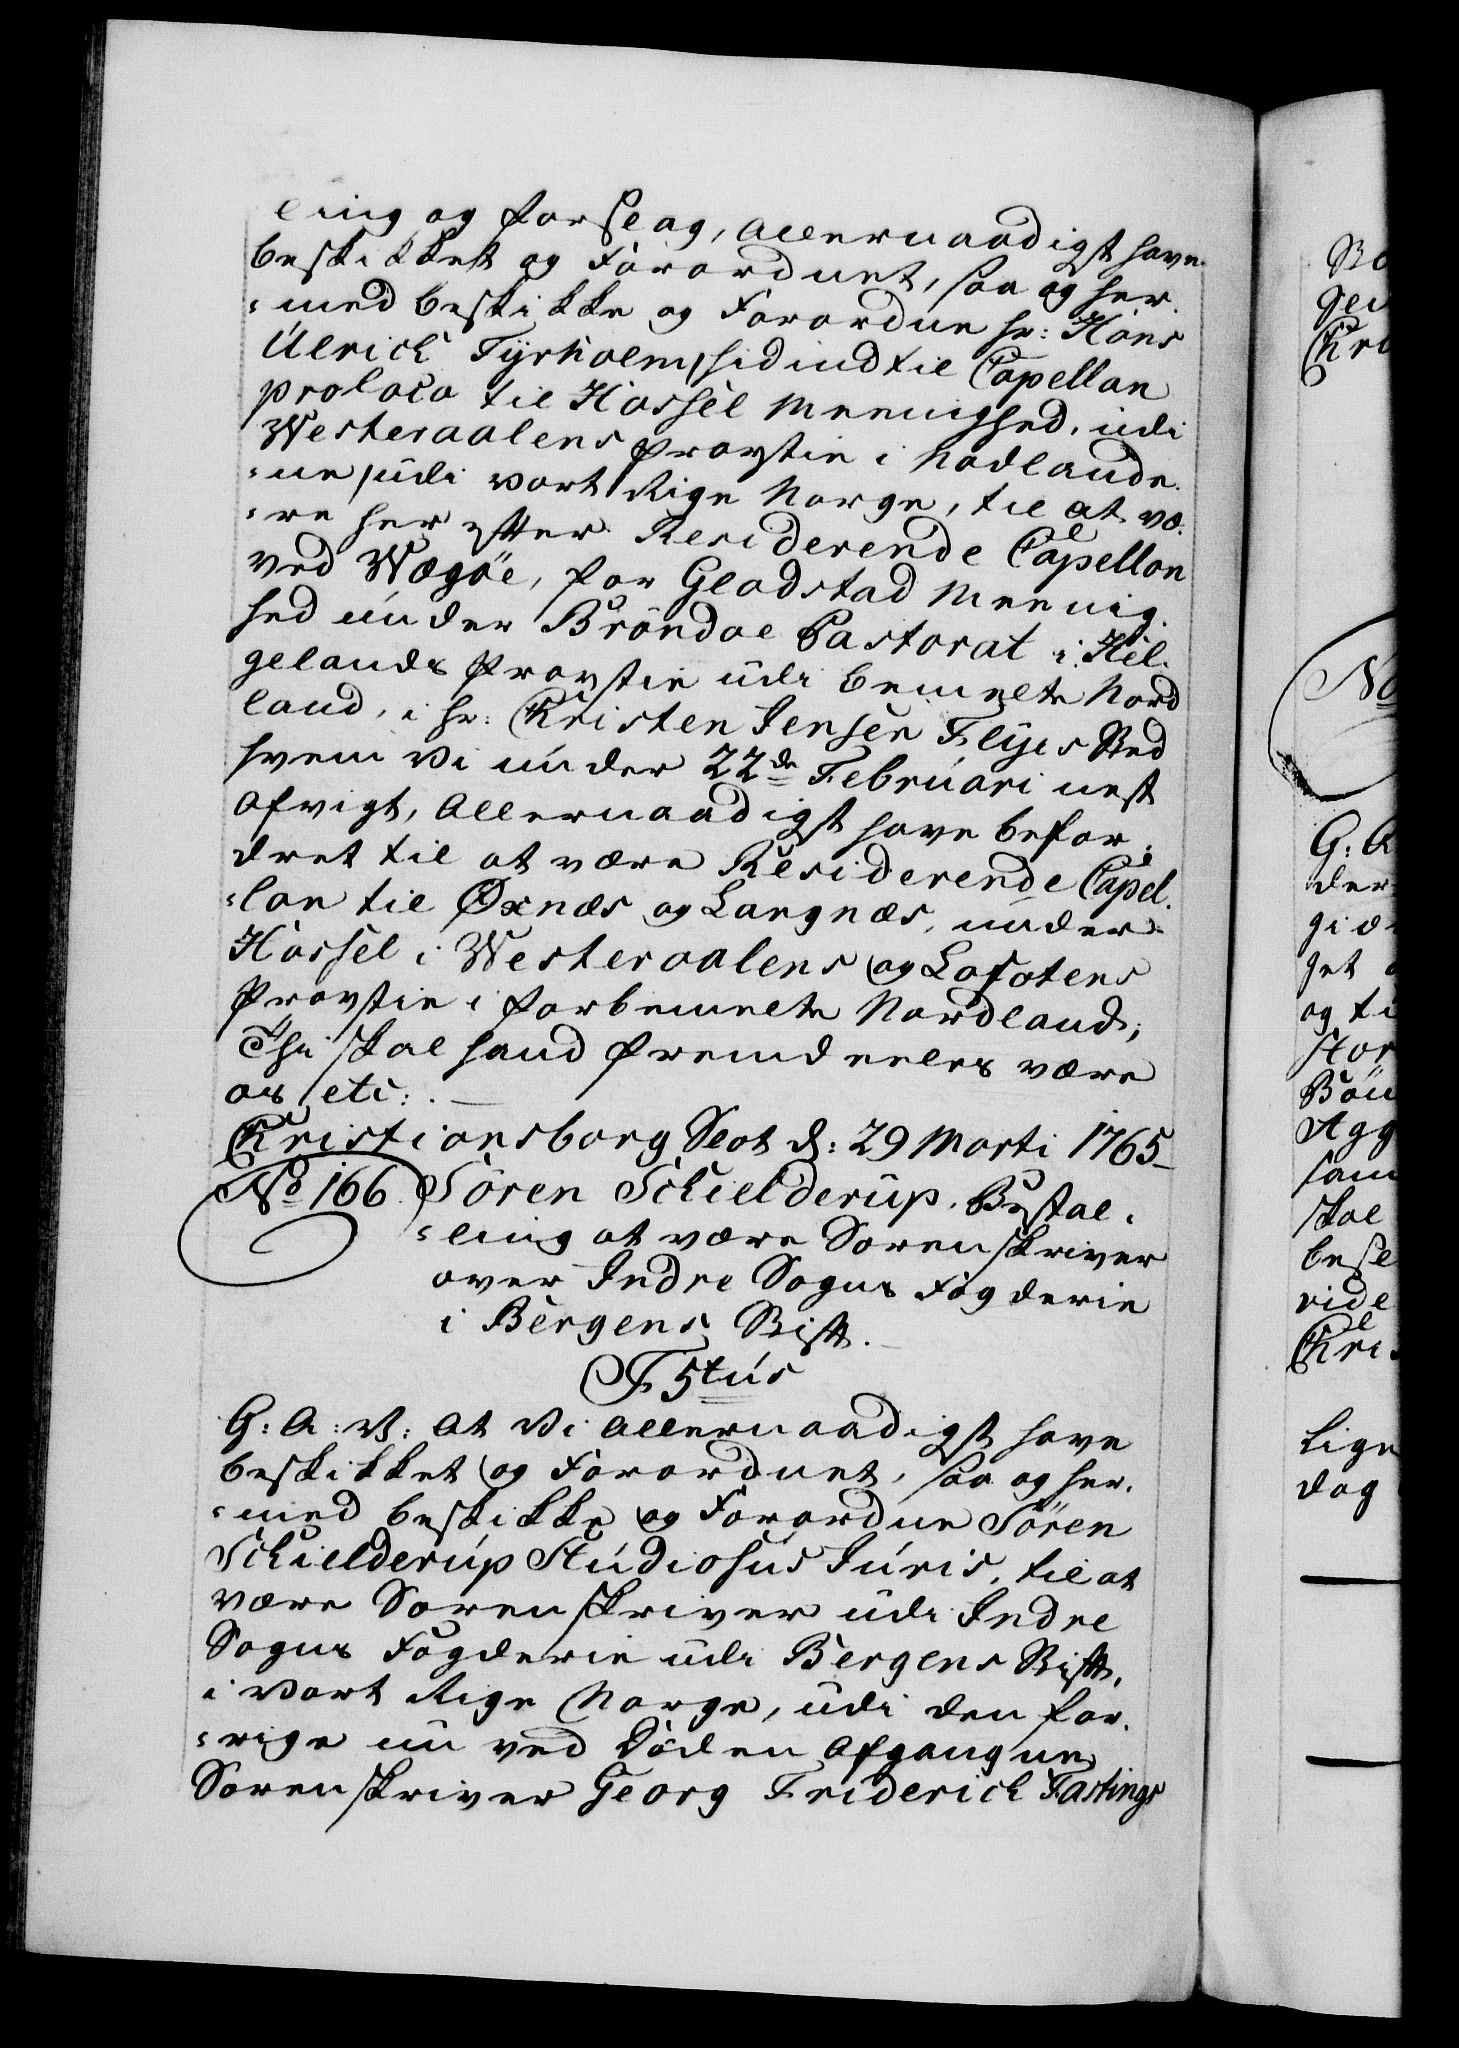 ling og forslag, allernaadigst have
beskikket og Forordnet, saa og her-
=med beskikke og Forordne hr: Hans
Ulrich Tyrholm, hid indtil Capellan
proloco til Hassel Meenighed, udi
Westeraalens Provstie i Nordlande-
=ne, udi vort Rige Norge, til at væ-
=re her efter Residerende Capellan
ved Wægöe, for Gladstad Meenig-
hed under Bröndöe Pastorat i Hel-
gelands Provstie udi bemelte Nord
land, i hr: Kristen Jensen Flyes Sted
hvem Vi under 22de Februari nest
afvigt, Allernaadigst have befor-
dret til at være Residerende Capel-
=lan til Øxnæs og Langnæs, under
Hassel i Westeraalens og Lofotens
Provstie i forbemelte Nordland;
Thi skal hand fremdeeles være
os etc: .
Kristiansborg Slot d: 29 Marti 1765
No 166. Sören Schielderup. Bestal-
=ling at være Sorenskriver
over Indre Sogns Fogderie
i Bergens Stift.
F 5tus
G: A: V: at Vi allernaadigst have
beskikket og Forordnet, saa og her-
=med beskikke og Forordne Sören
Schielderup Studiosus Juris, til at
være Sorenskriver udi Indre
Sogns Fogderie udi Bergens Stift,
i vort Rige Norge, udi den for-
=rige nu ved Döden afgangne
Sorenskriver Georg Friderich Fastings